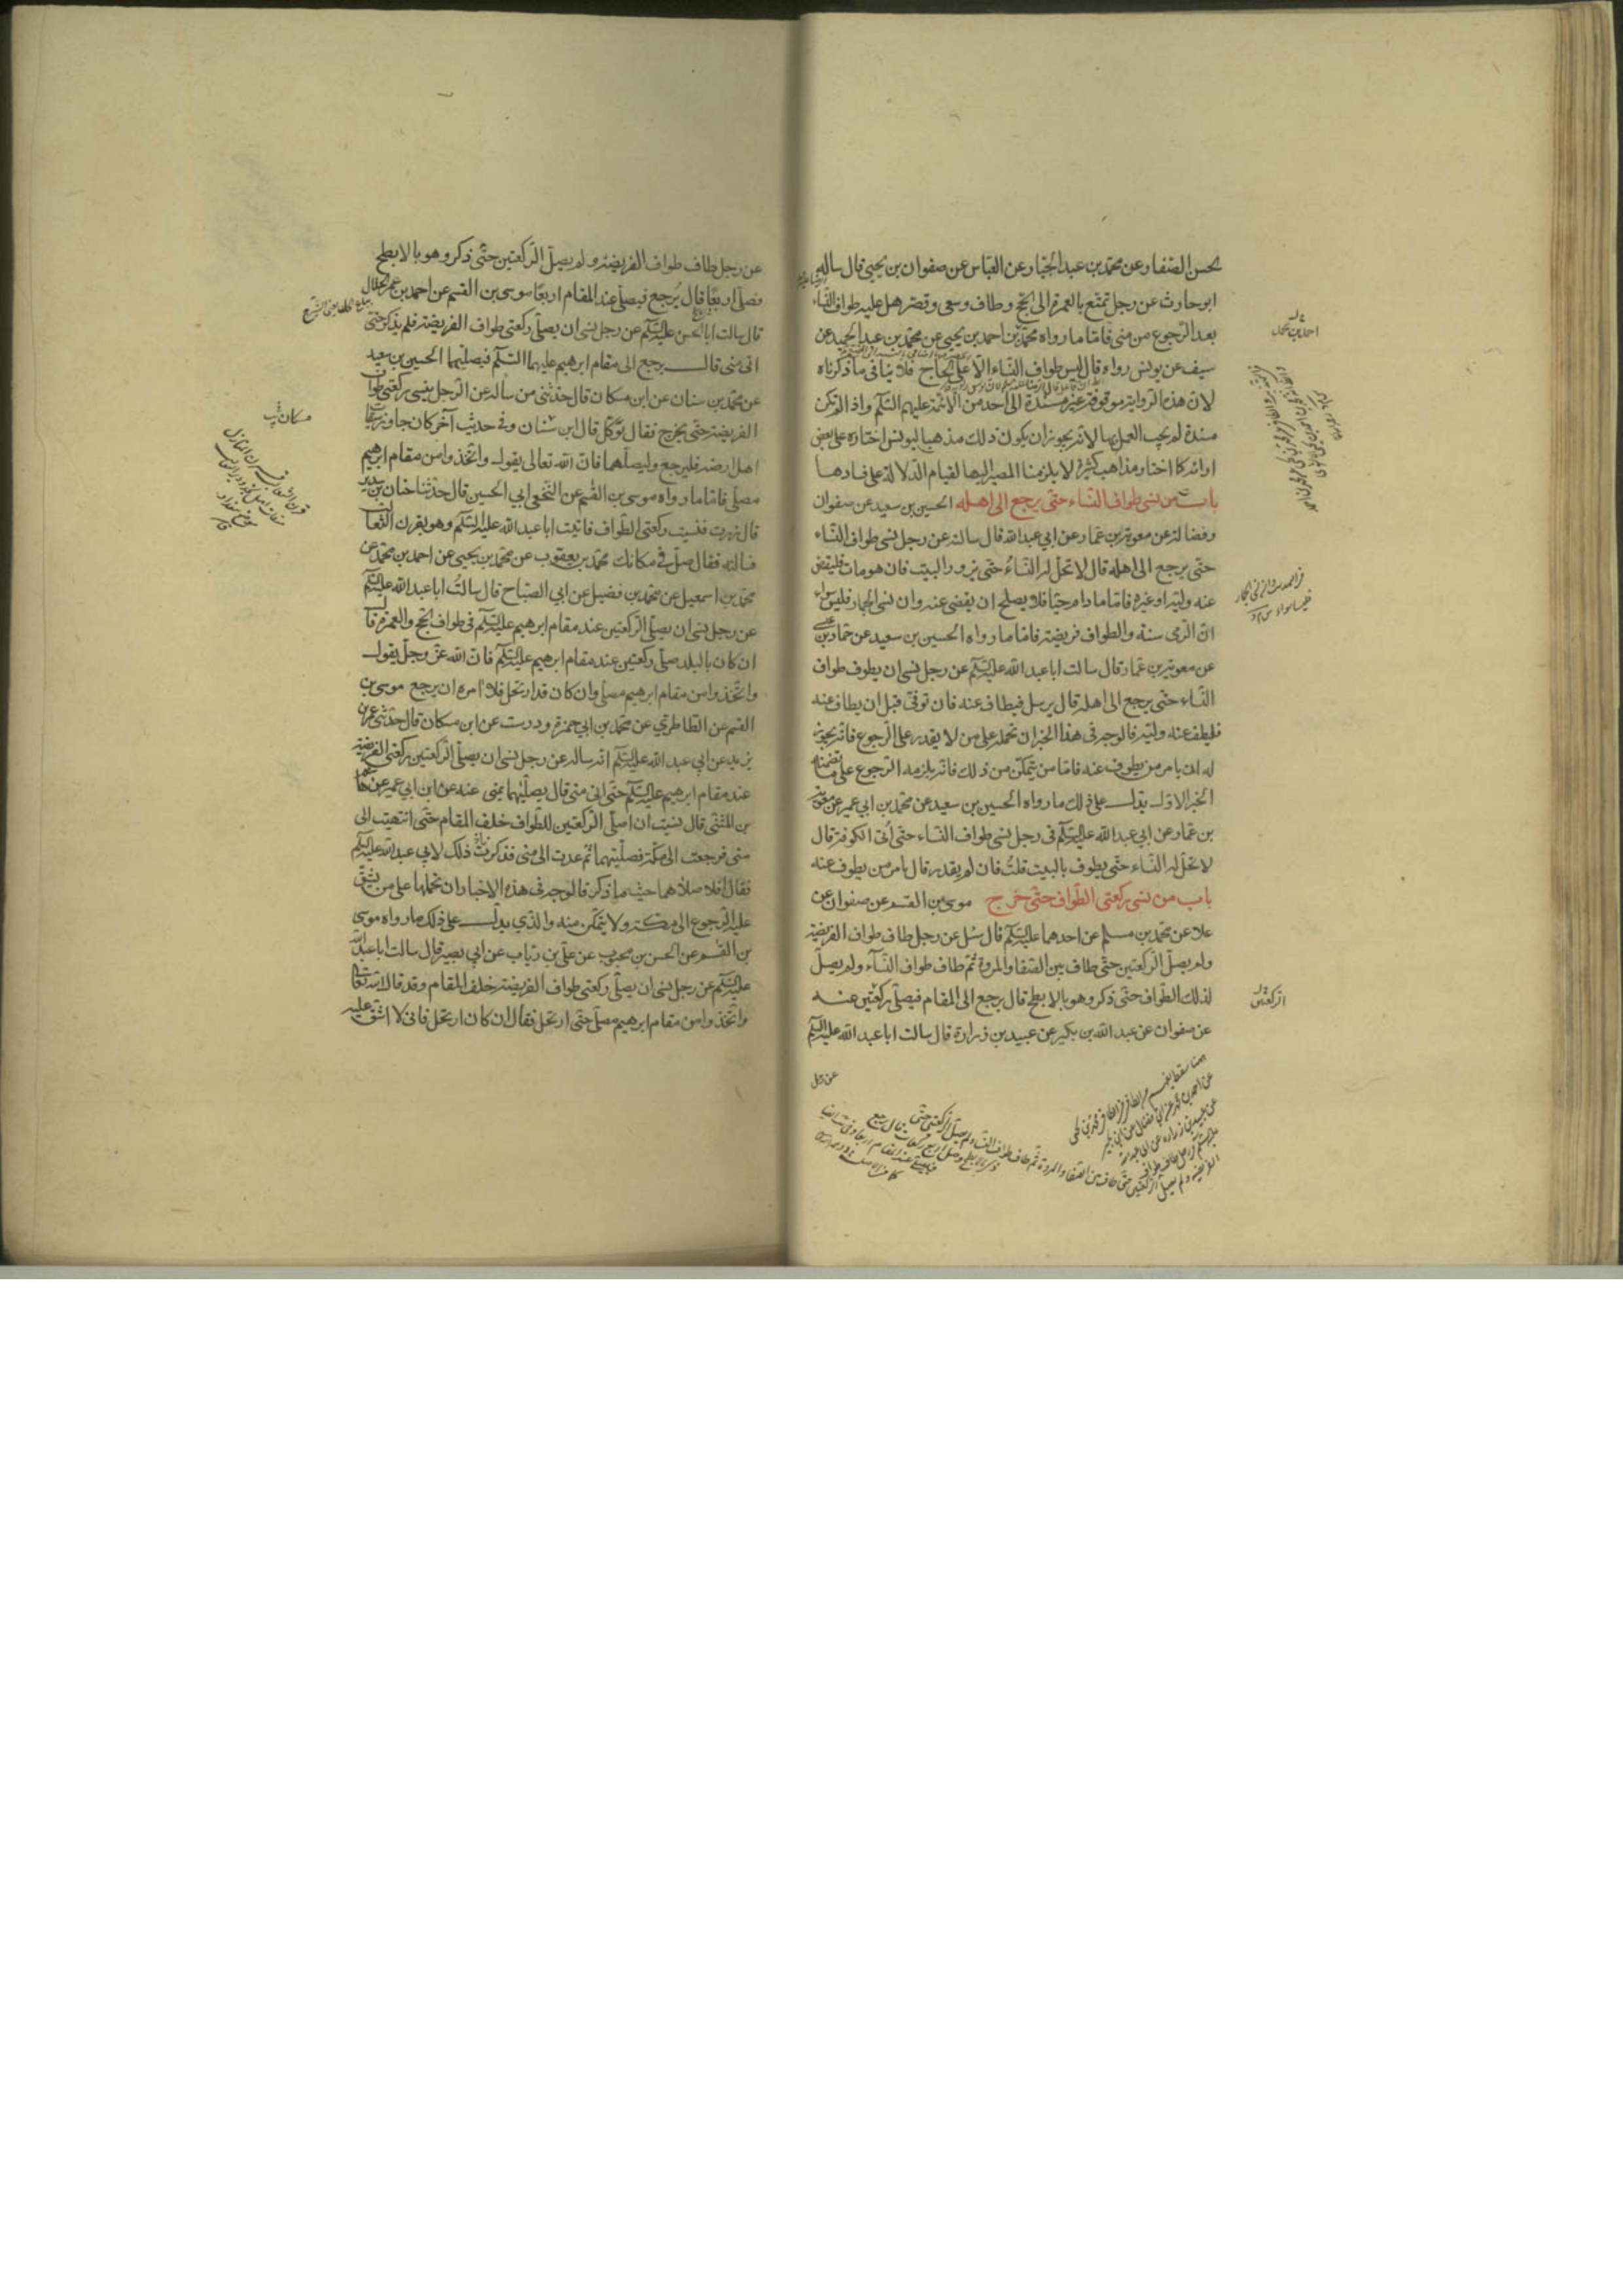 الحسن الصفار عن محمد بن عبد الجبار عن العباس عن صفوان بن يحيى قال ساله
ابو حارث عن رجل تمتع بالعمرة الى الحج وطاف وسعى وقصر هل عليه طواف النساء
بعد الرجوع من منى فاما ما رواه محمد بن احمد بن يحيى عن محمد بن عبد الحميد عن
سيف عن يونس رواه قال ليس طواف النساء الا على الحاج فلا ينافى ما ذكرناه
لان هذه الرواية موقوفة غير مسندة الى احد من الائمة عليهم السلام واذا لم تكن
مسندة لم يجب العمل بها لانه يجوز ان يكون ذلك مذهبا ليونس اختاره على بعض
ارائه كما اختار مذاهب كثيرة لا يلزمنا المصير اليها لقيام الدلالة على فسادها
باب من نسى طواف النساء حتى يرجع الى اهله الحسين بن سعيد عن صفوان
وفضالة عن معوية بن عمار عن ابي عبد الله قال سالته عن رجل نسى طواف النساء
حتى يرجع الى اهله قال لا تحل له النساء حتى يزور البيت فان هو مات فليقض
عنه وليه او غيره فاما ما دام حيا فلا يصلح ان يقضى عنه وان نسى الجمار فليس سواء
ان الرمى سنة والطواف فريضة فاما ما رواه الحسين بن سعيد عن حماد بن عيسى
عن معوية بن عمار قال سالت ابا عبد الله عليه السلام عن رجل نسى ان يطوف طواف
النساء حتى يرجع الى اهله قال يرسل فيطاف عنه فان توفى قبل ان يطاف عنه
فليطف عنه وليه فالوجه فى هذا الخبر ان نحمله على من لا يقدر على الرجوع فانه يجوز
له ان يامر من يطوف عنه فاما من يتمكن من ذلك فانه يلزمه الرجوع على ما تضمنه
الخبر الاول يدل على ذلك ما رواه الحسين بن سعيد عن محمد بن ابي عمير عن معوية
بن عمار عن ابي عبد الله عليه السلام فى رجل نسى طواف النساء حتى أتى الكوفة قال
لا تحل له النساء حتى يطوف بالبيت قلت فان لم يقدر قال يامر من يطوف عنه
باب من نسى ركعتى الطواف حتى خرج موسى بن القسم عن صفوان عن
علا عن محمد بن مسلم عن احدهما عليه السلام قال سئل عن رجل طاف طواف الفريضة
ولم يصل الركعتين حتى طاف بين الصفا والمروة ثم طاف طواف النسآء ولم يصل
لذلك الطواف حتى ذكر وهو بالابطح قال يرجع الى المقام فيصلى ركعتين عنه
عن صفوان عن عبد الله بن بكير عن عبيد بن زرارة قال سالت ابا عبد الله عليه السلام
عن رجل
احمد بن محمد
الركعتين
عن رجل طاف طواف الفريضة ولم يصل الركعتين حتى ذكر وهو بالابطح
فصلى اربعا قال يرجع فيصلى عند المقام اربعا موسى بن القسم عن احمد بن عمر الحلال
قال سالت ابا الحسن عليه السلام عن رجل نسى ان يصلى ركعتى طواف الفريضة فلم يذكر حتى
اتى منى قال يرجع الى مقام ابرهيم عليهما السلم فيصليهما الحسين بن سعيد
عن محمد بن سنان عن ابن مسكان قال حدثنى من ساله عن الرجل ينسى ركعتى طواف
الفريضة حتى يخرج فقال يوكل قال ابن سنان وفى حديث آخر ان كان جاوز ميقات
اهل ارضه فليرجع وليصلهما فان الله تعالى يقول واتخذوا من مقام ابرهيم
مصلى فاما ما رواه موسى بن القسم عن النخعى ابي الحسين قال حدثنا حنان بن سدير
قال زرت فنسيت ركعتى الطواف فاتيت ابا عبد الله عليه السلم وهو بقرن الثعالب
فسالته فقال صل فى مكانك محمد بن يعقوب عن محمد بن يحيى عن احمد بن محمد عن
محمد بن اسمعيل عن محمد بن فضيل عن ابي الصباح قال سالت ابا عبد الله عليه السلم
عن رجل نسى ان يصلى الركعتين عند مقام ابرهيم عليه السلم فى طواف الحج والعمرة قال
ان كان بالبلد صلى ركعتين عند مقام ابرهيم عليه السلم فان الله عز وجل يقول
واتخذوا من مقام ابرهيم مصلى وان كان قد ارتحل فلا امره ان يرجع موسى بن
القسم عن الطاطرى عن محمد بن ابي حمزة ودرست عن ابن مسكان قال حدثنى عمر بن
يزيد عن ابي عبد الله عليه السلم انه ساله عن رجل نسى ان يصلى الركعتين ركعتى الفريضة
عند مقام ابرهيم عليه السلم حتى اتى منى قال يصليهما بمنى عنه عن ابن ابي عمير عن هشام
بن المثنى قال نسيت ان اصلى الركعتين للطواف خلف المقام حتى انتهيت الى
منى فرجعت الى مكة فصليتهما ثم عدت الى منى فذكرت ذلك لابي عبد الله عليه السلم
فقال افلا صلاهما حيث ما ذكر فالوجه فى هذه الاخبار ان نحملها على من يشق
عليه الرجوع الى مكة ولا يتمكن منه والذي يدل على ذلك ما رواه موسى
بن القسم عن الحسن بن محبوب عن علي بن رئاب عن ابي بصير قال سالت ابا عبد الله
عليه السلم عن رجل نسى ان يصلى ركعتى طواف الفريضة خلف المقام وقد قال الله تعالى
واتخذوا من مقام ابرهيم مصلى حتى ارتحل فقال ان كان ارتحل فانى لا اشق عليه